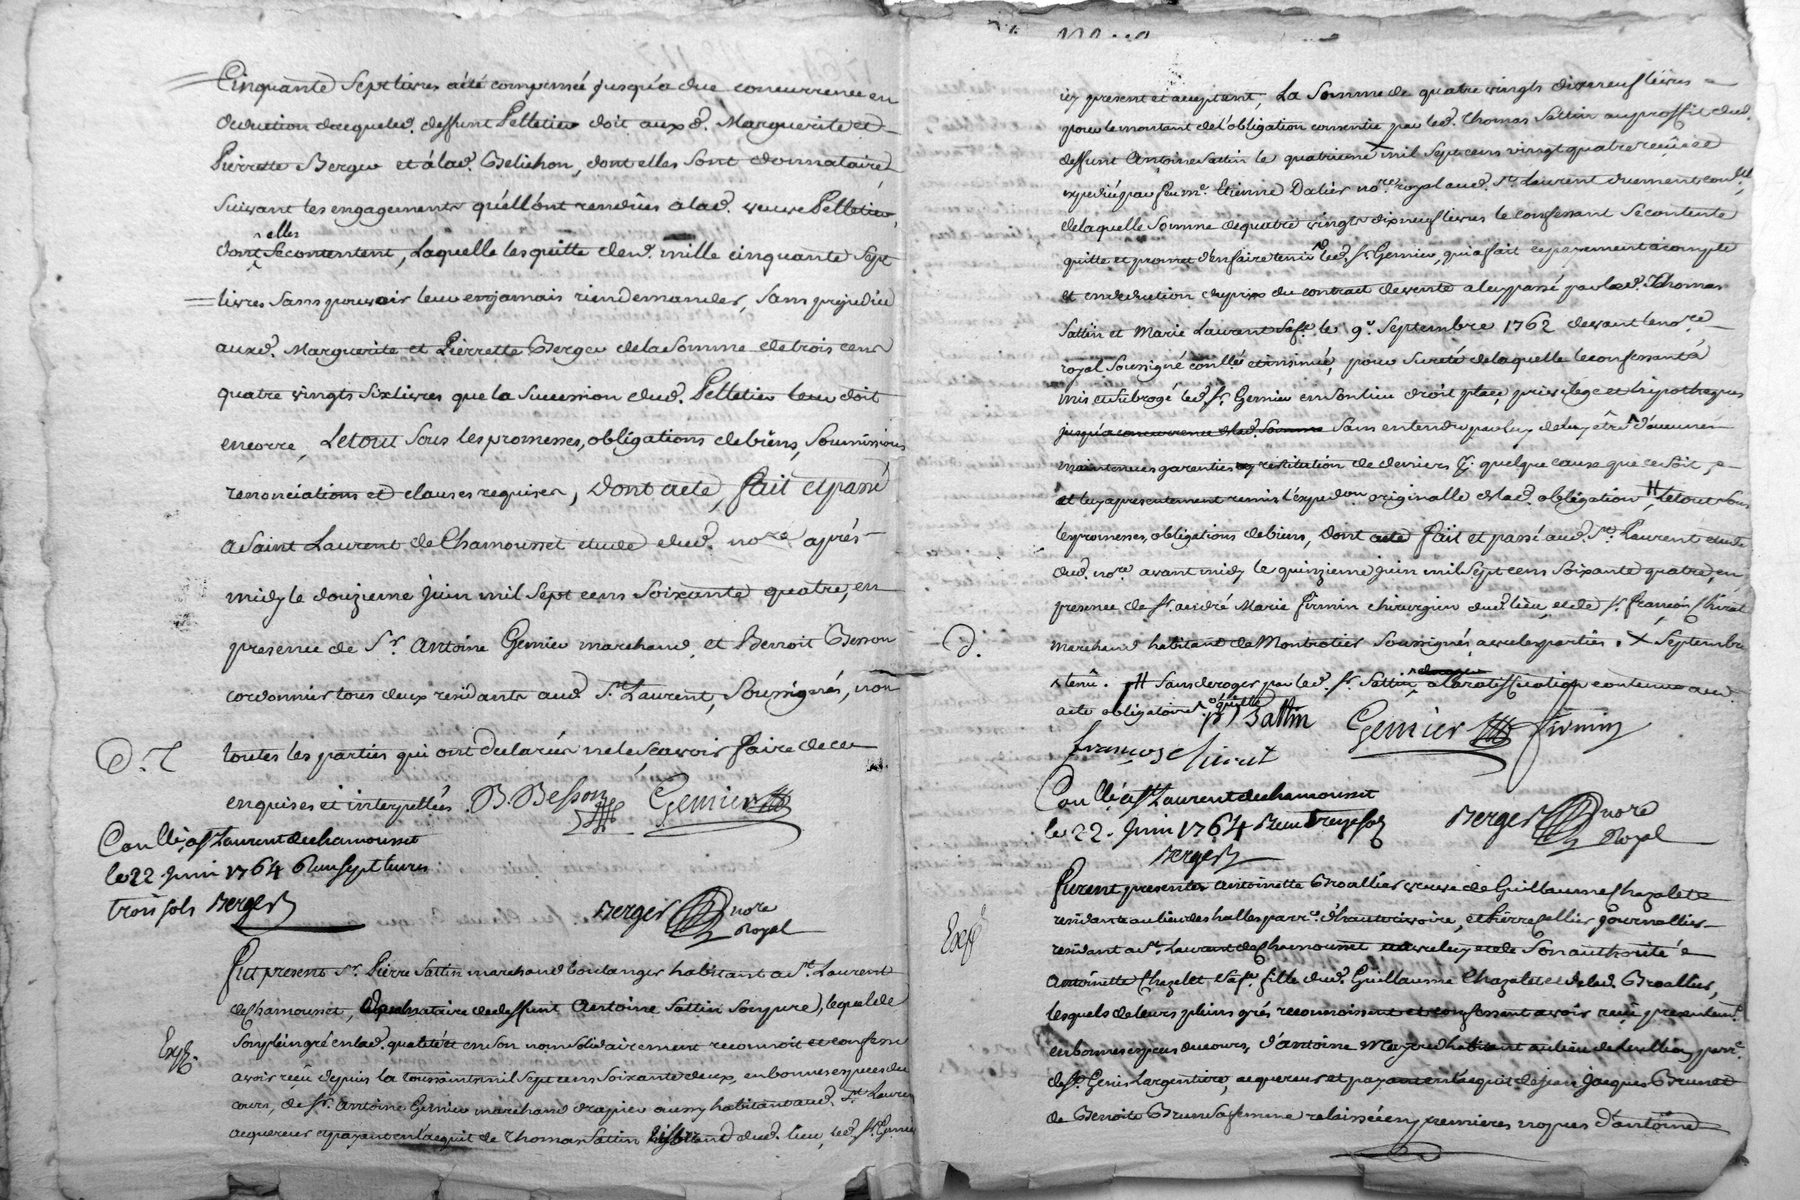 Cinquante Sept livres a été compensée jusqu'a due concurrence en
deduction dacequeled. deffunt Pelletier doit aux d. Marguerite et
Pierrette Berger et á lad. Belichon, dont elles sont donnataire
Suivant les engagements qu'ell'ont rendües a lad. veuve Pelletier,
elles
dont Secontentent, Laquelle les quitte desd. mille cinquante Sept
livres Sans pouvoir leur en jamais rien demander, Sans prejudice
auxd. Marguerite et Pierrette Berger de la Somme de trois cens
quatre vingts Six livres que la Succession dud. Pelletier leur doit
encorre, Le tout Sous les promesses, obligations de biens, Soumissions
renonciations et clauses requises, Dont acte, fait et passé
a Saint Laurent de Chamousset etude dud. nore. aprés
midy le douzieme Juin mil Sept cens Soixante quatre, en
presence de Sr. Antoine Gemier marchand, et Benoit Besson
cordonnier tous deux residants aud. St. Laurent, Soussignés, non
D. 7
toutes les parties qui ont declarés ne le Scavoir faire de ce
enquises et interpellées.
B. Besson
Gemier
Conllé a st Laurent de chamousset
le 22 Juin 1764 Reçu sept livres
trois sols Berger
Berger nore
Royal
Fut present Sr. Pierre Sattin marchand boulanger habitant a St. Laurent
de Chamousset, donnataire de deffunt Antoine Sattin Son pere, lequel de
Exp.
Son plein gré en lad. qualité et en Son nom Solidairement reconnoit et confesse
avoir reçû depuis la toussaints mil Sept cens Soixante deux, en bonnes especes du
cours, de Sr. Antoine Gemier marchand drapier aussy habitant aud. St. Laurent
acquereur et payant en l'acquit de Thomas Sattin dud. lieu, led. Sr. Gemier
icy present et acceptant, La Somme de quatre vingts dix neuf livres
pour le montant de l'obligation consentie par led. Thomas Sattin au proffit dud.
deffunt Antoine Sattin le quatrieme X mil Sept cens vingt quatre reçüe et
expediée par feu me. Etienne Dalier nore. royal aud. St. Laurent duement conllé,
de laquelle Somme de quatre vingts dix neuf livres le confessant Se contente
quitte et promet d'en faire tenir led. Sr. Gemier, qui a fait ce payement a compte
et en deduction du prix du contract de vente a luy passé par led. Thomas
Sattin et Marie Laurent Sa fe. le 9e. Septembre 1762 devant le nore.
royal Soussigné conllé et insinué, pour Sureté de laquelle le confessant á
mis et subrogé led. Sr. Gemier en Son lieu droit place, privilége et hipotheques
jusqu'a concurrence de lad. Somme Sans entendre par luy etre d'aucunes
maintenues garenties restitution de deniers quelque cause que ce Soit,
et luy a presentement remis l'expedon originalle de lad. obligation, H Le tout Sous
les promesses, obligations de biens, Dont acte fait et passé aud. St. Laurent etude
dud. nore. avant midy le quinzieme Juin mil Sept cens Soixante quatre, en
presence de Sr. andré Marie Firmin chirurgien dud. lieu, et de Sr. françois Chirat
D.
marchand habitant de Montrotier Soussignés avec les parties. X Septembre
tenû. H Sans deroger par led. Sr. Sattin a la ratiffication contenue aud.
acte obligatoire
p Sattin
Gemier
firmin
françois Chirat
Conllé a st Laurent de chamousset
le 22. Juin 1764 Reçu treize sols
Berger
Berger nore
Royal
Furent presentes Antoinette Broallier veuve de Guillaume Chazalette
residante au lieu des halles parr. d'hauterivoire, et Pierre Journallier
Exp.
residant a St. Laurent de Chamousset et de Son authorité
Antoinette Chazalet Sa fe. fille dud. Guillaume Chazalet et de lad. Broallier,
lesquels de leurs pleins grés reconnoissent et confessent avoir reçû presentemt.
en bonnes especes du cours, d'antoine habitant au lieu de parr.
de St. Genis Largentiere, acquereur et payant en l'acquit de jean Jacques Brunet
de Benoite Brun Sa femme relaissée en premieres nopces d'antoine